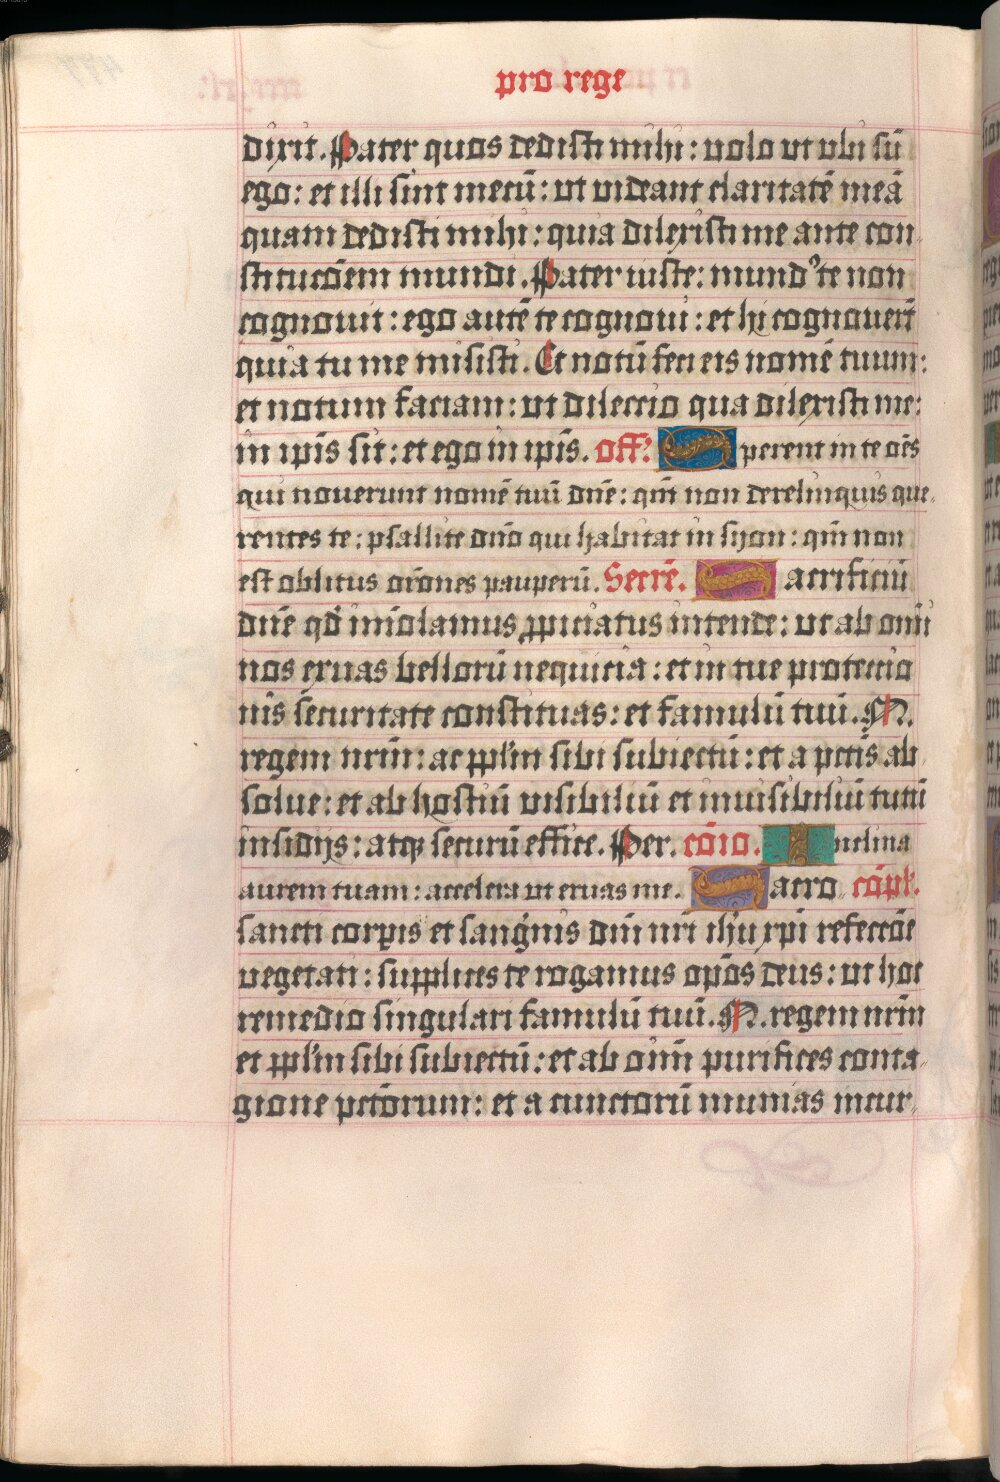 pro rege
dixit. Pater quos dedisti mihi: volo ut ubi sū
ego: et illi sint mecū: ut videant claritatē meā
quam dedisti mihi: quia dilexisti me ante con
stitucōem mundi. Pater iuste: mundꝰ te non
cognovit: ego autē te cognovi: et hi cognoverūt
quia tu me misisti. Et notū feci eis nomē tuum:
et notum faciam: ut dileccio qua dilexisti me:
in ipīs sit: et ego in ipīs. off. Sperent in te oēs
qui noverunt nomē tuū dn̄e: qm̄ non derelinquis que
rentes te: psallite dn̄o qui habitat in syon: qm̄ non
est oblitus or̄ones pauperū. Secrē. Sacrificiū
dn̄e qd̄ im̄olamus ꝓpiciatus intende: ut ab om̄i
nos exuas bellorū nequicia: et in tue proteccio
nis securitate constituas: et famulū tuū. N.
regem nr̄m: ac pp̄lm sibi subiectū: et a pctīs ab
solve: et ab hostiū visibiliū et invisibiliū tutū
insidijs: atqꝫ securū effice. Per. cōio. Inclina
aurem tuam: accelera ut eruas me. Sacro cōpl.
sancti corpis et sanġnis dn̄i nr̄i ih̄u xp̄i refeccōe
vegetati: supplices te rogamus op̄os deus: ut hoc
remedio singulari famulū tuū. N. regem nr̄m
et pp̄lm sibi subiectū: et ab om̄i purifices conta
gione pctōrum: et a cunctorū munias incur